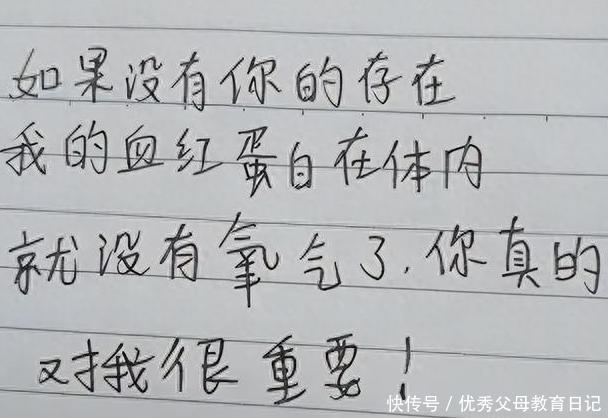 如果没有你的存在
我的血红蛋白在体内
就没有氧气了.你真的
对我很重要！
快传号/优秀父母教育日记